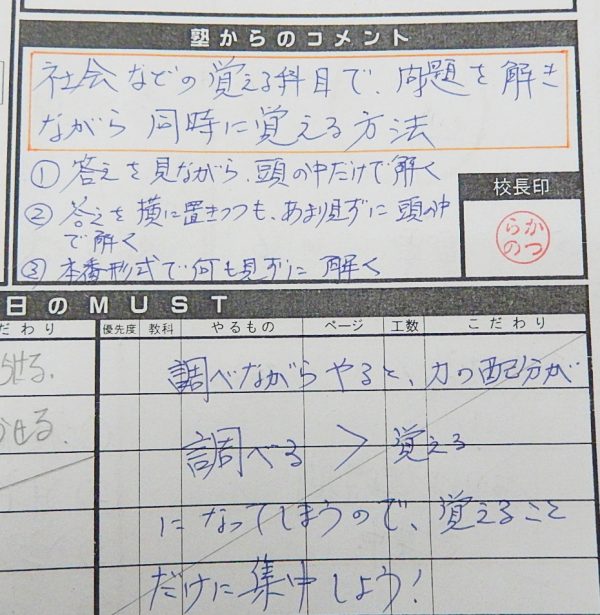 塾からのコメント
社会などの覚える科目で、問題を解き
ながら同時に覚える方法
① 答えを見ながら、頭の中だけで解く
② 答えを横に置きつつも、あまり見ずに頭の中
で解く
③ 本番形式で何も見ずに解く
校長印
かつ
らの
日のMUST
だわり
優先度 教科 やるもの ページ 工数 こだわり
せる.
せる.
調べながらやると、力の配分が
調べる > 覚える
になってしまうので、覚えること
だけに集中しよう!